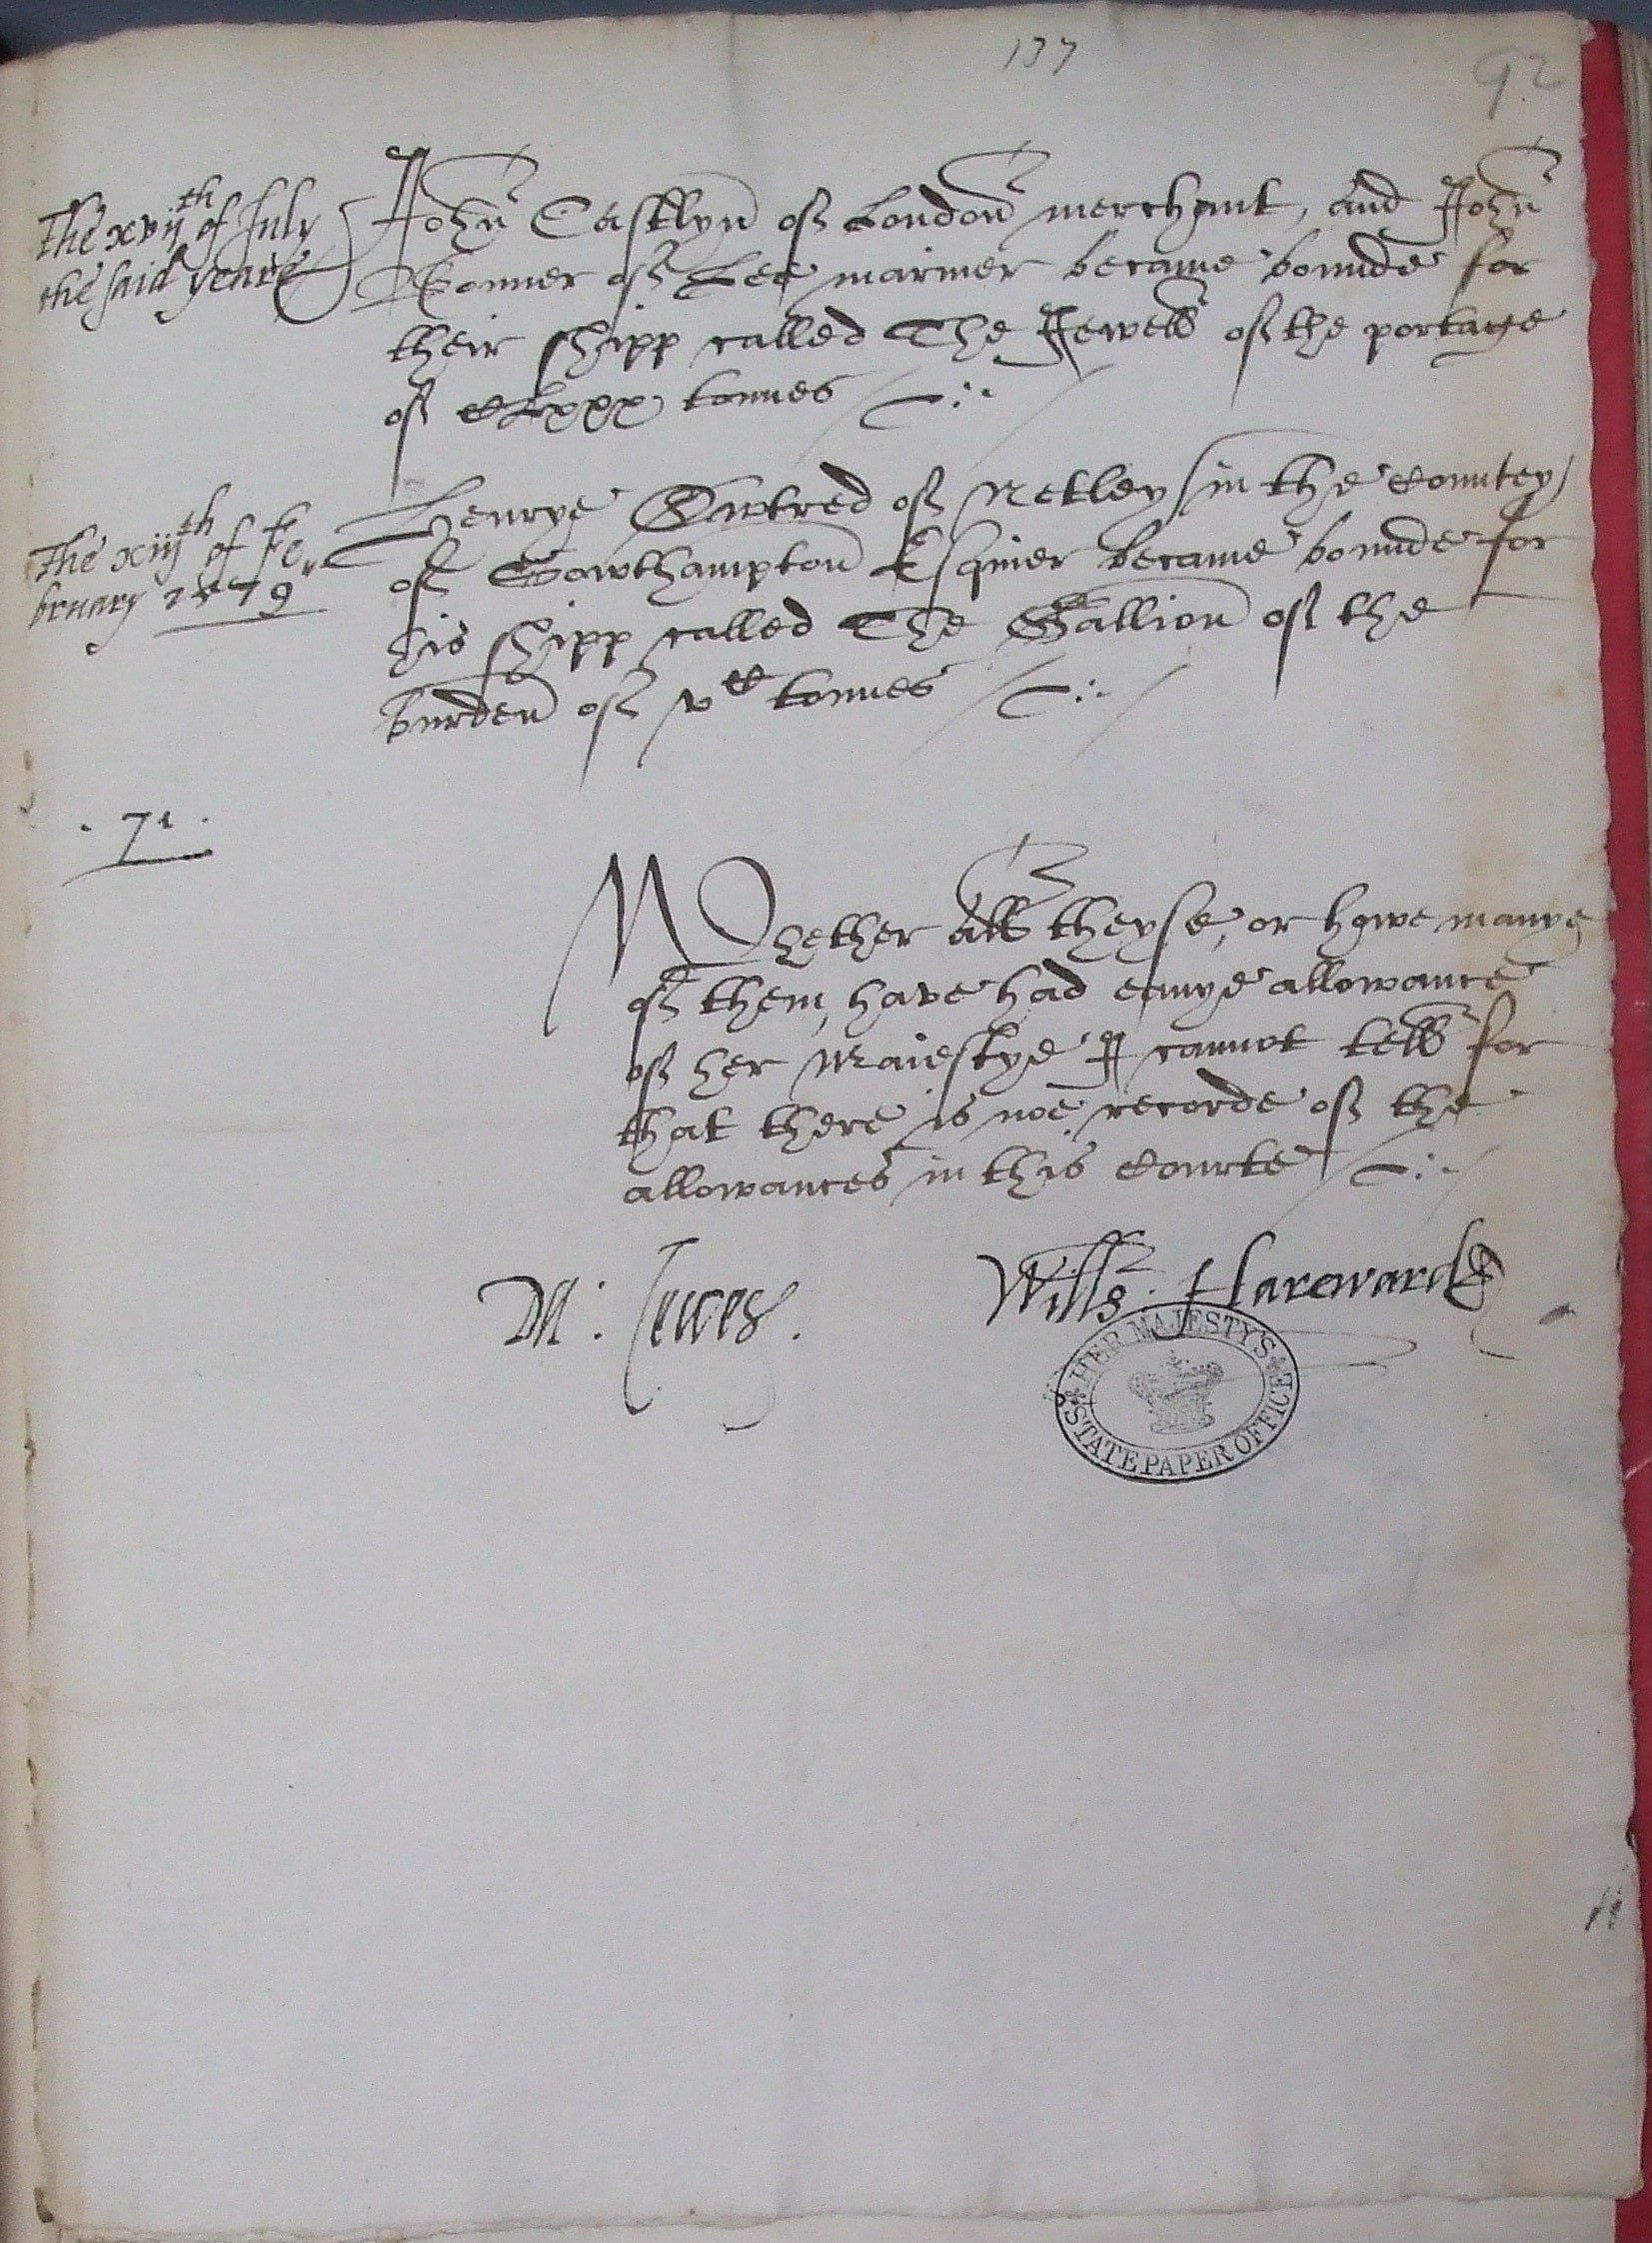 137
92
The xvijth of July
the said yeare
John Castlyn of London merchant, and John
Bonner of Lee mariner became bounde for
their shipp called The Jewell of the portage
of CLxxx tonnes
The xiijth of Fe„
bruary 1579
Henrye Owtred of Netley in the Countey
of Sowthampton Esquier became bounde for
his shipp called The Gallion of the
burden of vC tonnes
. 71 .
Whether all theyse, or howe manye
of them, have had ennye allowance
of her Maiestye I cannot tell for
that there is noe recorde of the
allowances in this Courte
Willm: Harewarde
HER MAJESTY'S
STATE PAPER OFFICE